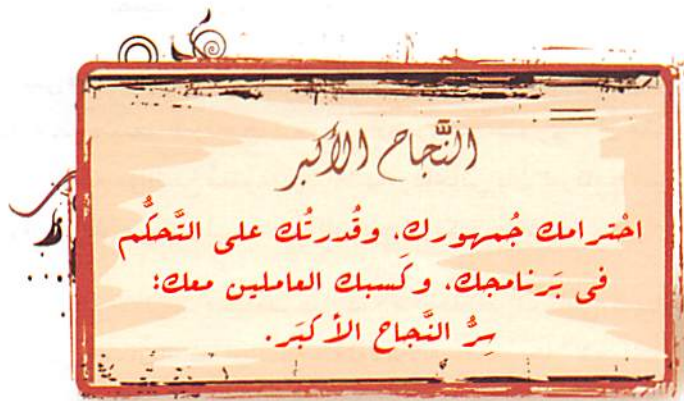 النَّجاح الأكبر
احْترامك جُمهورك، وقُدرتُك على التَّحكُّم
فى بَرنامجك، وكَسبك العاملين معك؛
سِرُّ النَّجاح الأكبَر.